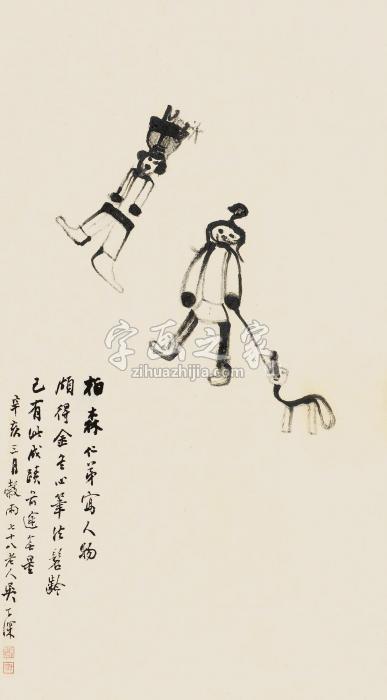 柏森仁弟寫人物
頗得金冬心筆法髫齡
已有此成蹟前途無量
辛亥三月穀雨七十八老人吳子深
字画之家
zihuazhijia.com